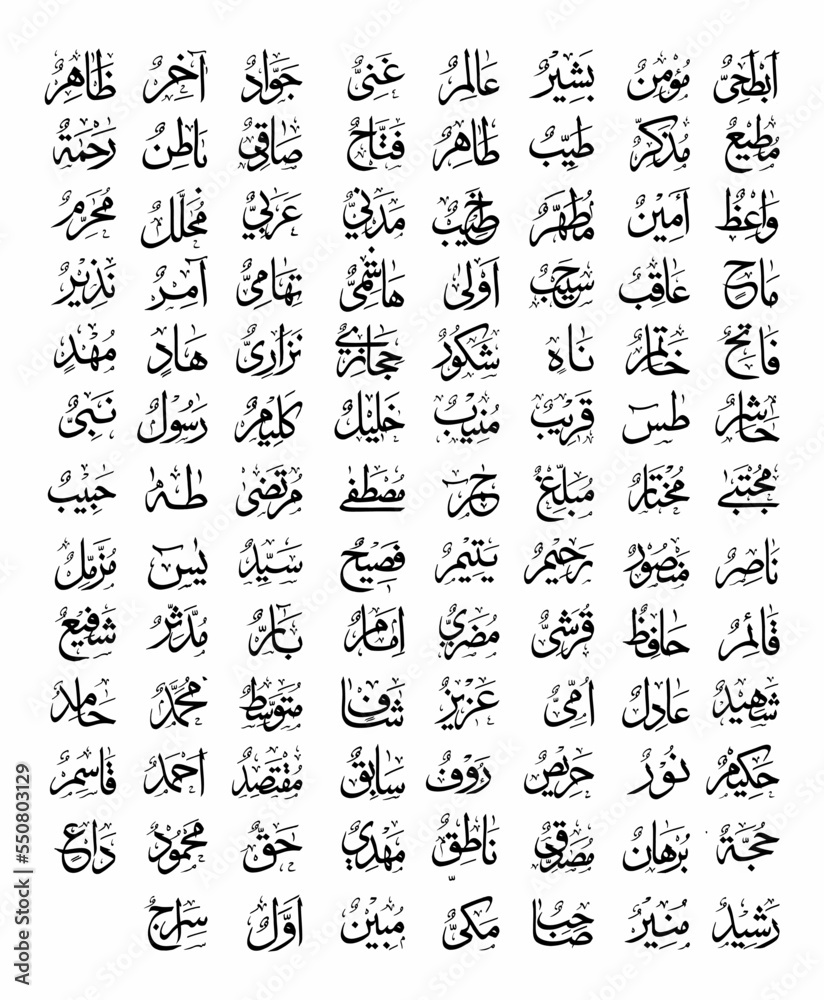 اَبْطَحِيٌّ مُؤْمِنٌ بَشِيْرٌ عَالِمٌ غَنِيٌّ جَوَّادٌ آخِرٌ ظَاهِرٌ
مُطِيْعٌ مُذَكِّرٌ طَيِّبٌ طَاهِرٌ فَتَّاحٌ صَادِقٌ بَاطِنٌ رَحْمَةٌ
وَاعِظٌ اَمِيْنٌ مُطَهَّرٌ خَطِيْبٌ مَدَنِيٌّ عَرَبِيٌّ مُحَلِّلٌ مُحَرِّمٌ
مَاحٍ عَاقِبٌ اَوْلٰى هَاشِمِيٌّ تِهَامِيٌّ آمِرٌ نَذِيْرٌ
فَاتِحٌ خَاتِمٌ نَاهٍ شَكُوْرٌ حِجَازِيٌّ نَزَارِيٌّ هَادٍ مُهْدٍ
حَاشِرٌ طٰسٓ قَرِيْبٌ مُنِيْبٌ خَلِيْلٌ كَلِيْمٌ رَسُوْلٌ نَبِيٌّ
مُجْتَبٰى مُخْتَارٌ مُبَلِّغٌ حٰمٓ مُصْطَفٰى مُرْتَضٰى طٰهٰ حَبِيْبٌ
نَاصِرٌ مَنْصُوْرٌ رَحِيْمٌ يَتِيْمٌ فَصِيْحٌ سَيِّدٌ يٰسٓ مُزَّمِّلٌ
قَائِمٌ حَافِظٌ قُرَشِيٌّ مُضَرِيٌّ اِمَامٌ بَارٌّ مُدَّثِّرٌ شَفِيْعٌ
شَهِيْدٌ عَادِلٌ اُمِّيٌّ عَزِيْزٌ شَافٍ مُتَوَسِّطٌ مُحَمَّدٌ حَامِدٌ
حَكِيْمٌ نُوْرٌ حَرِيْصٌ رَءُوْفٌ سَابِقٌ مُقْتَصِدٌ اَحْمَدُ قَاسِمٌ
حُجَّةٌ بُرْهَانٌ مُصَدِّقٌ نَاطِقٌ مَهْدِيٌّ حَقٌّ مَحْمُوْدٌ دَاعٍ
رَشِيْدٌ مُنِيْرٌ صَاحِبٌ مَكِّيٌّ مُبِيْنٌ اَوَّلٌ سِرَاجٌ
Adobe Stock | #550803129